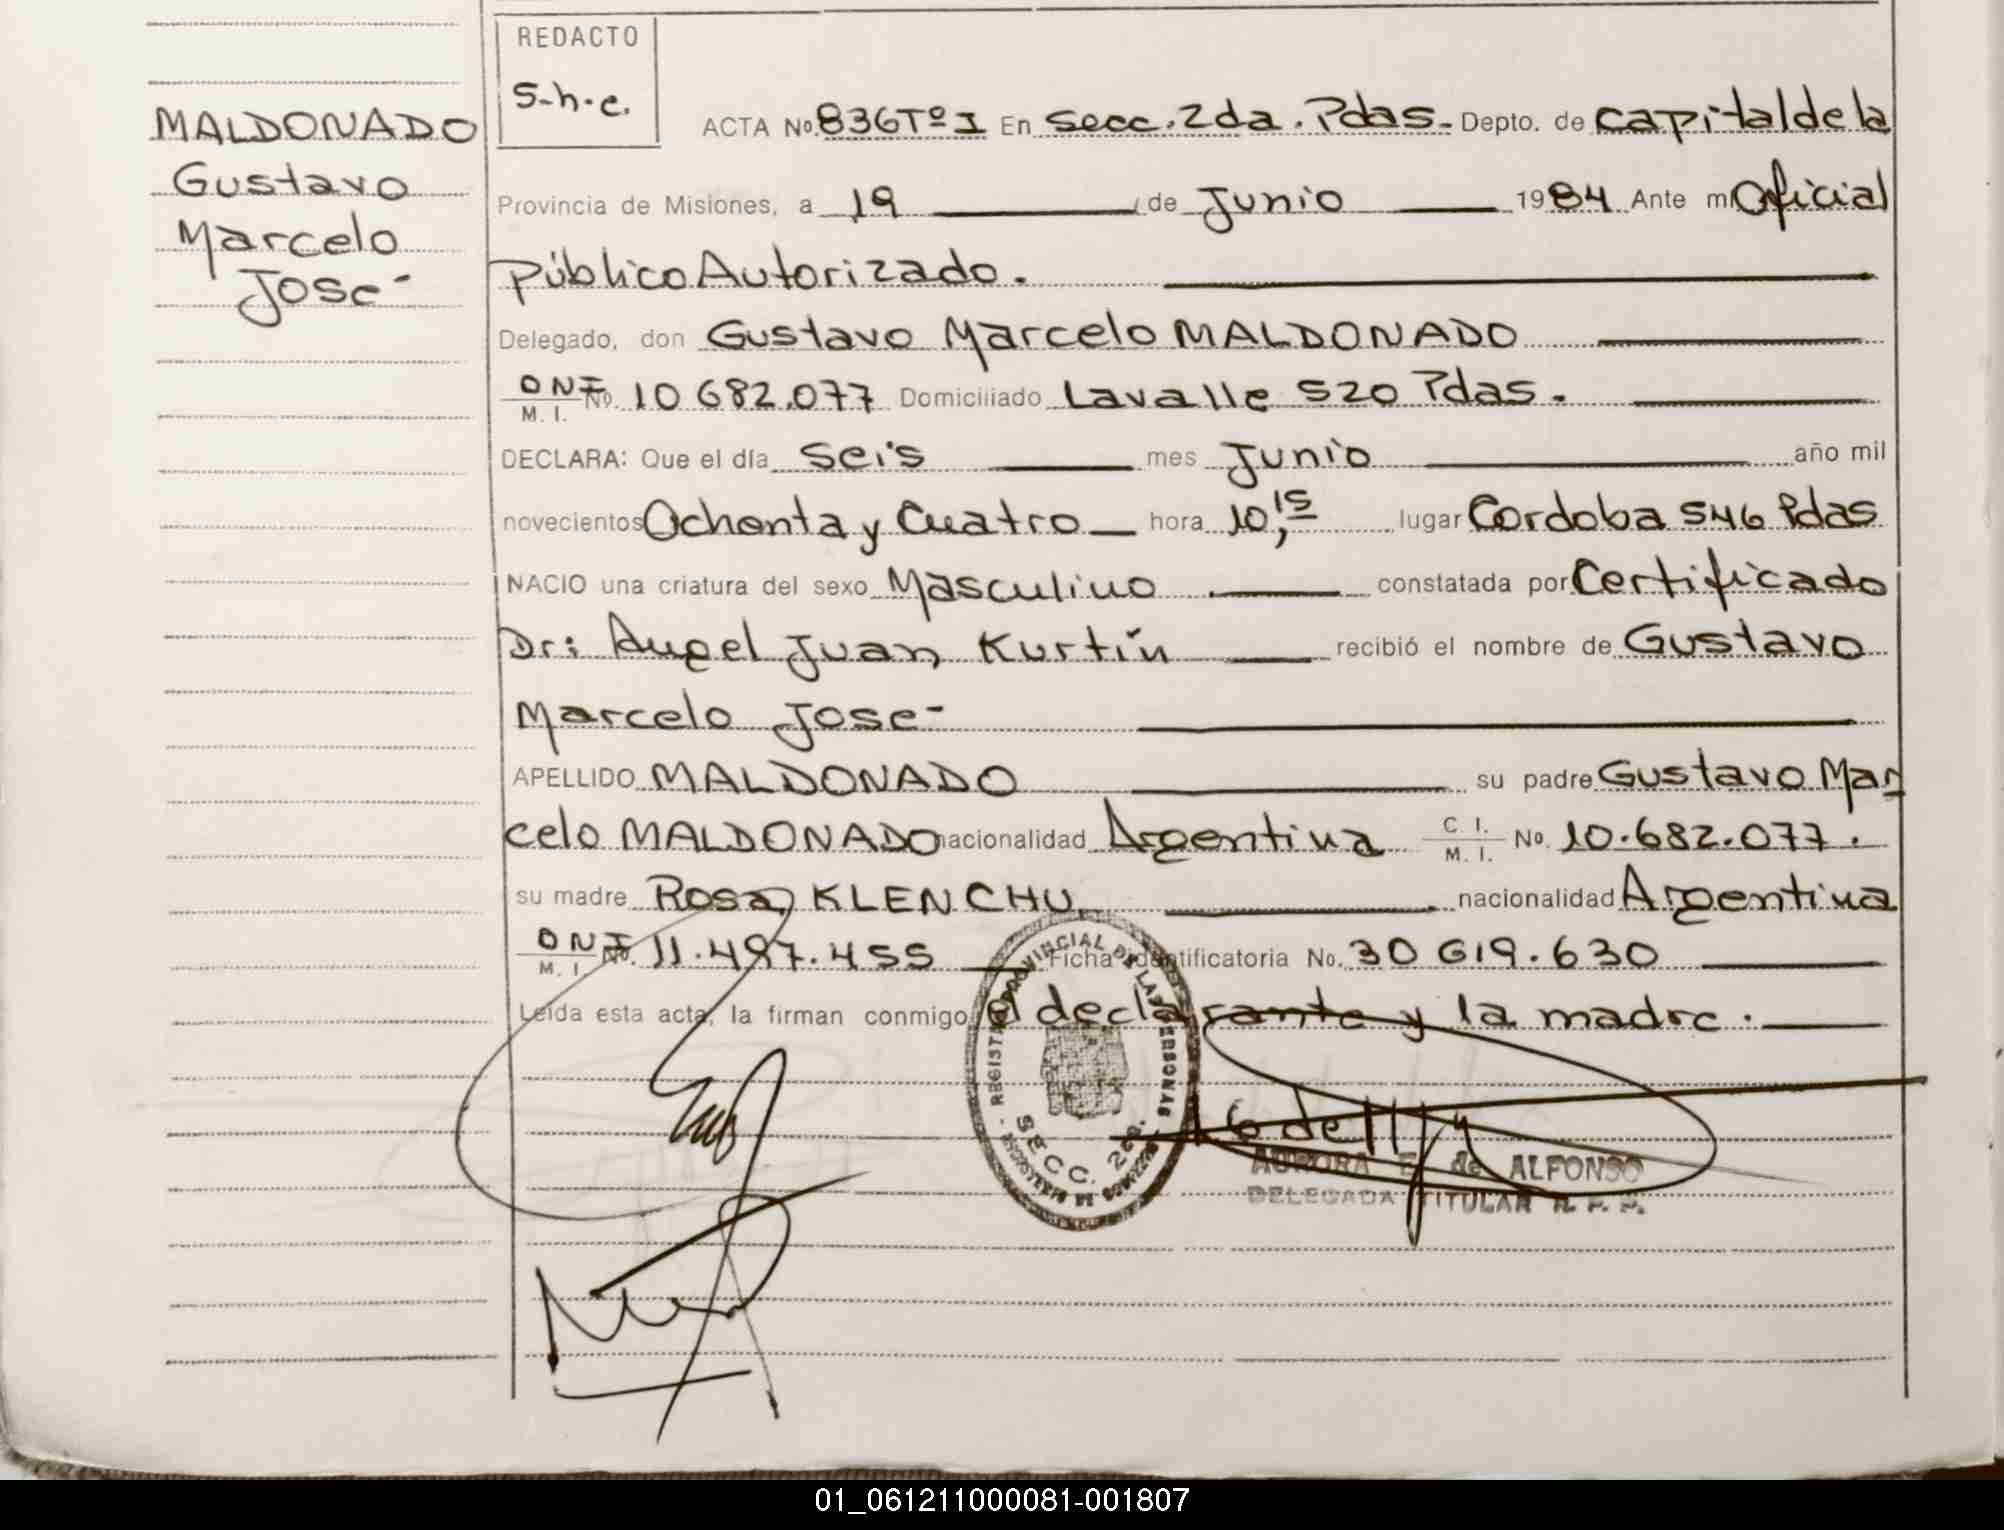 REDACTO
S-h-e.
MALDONADO
Gustavo
Marcelo
Jose-
ACTA No. 836 Tº I En Secc. 2da. Pdas. Depto. de Capital de la
Provincia de Misiones, a 19 de Junio 1984 Ante mi Oficial
Público Autorizado.
Delegado, don Gustavo Marcelo MALDONADO
DNI M. I. No. 10 682.077 Domiciliado Lavalle 520 Pdas.
DECLARA: Que el día Seis mes Junio año mil
novecientos Ochenta y Cuatro hora 10,15 lugar Cordoba 546 Pdas
NACIO una criatura del sexo Masculino constatada por Certificado
Dr: Angel Juan Kurtín recibió el nombre de Gustavo
Marcelo Jose-
APELLIDO MALDONADO su padre Gustavo Mar
celo MALDONADO nacionalidad Argentina C. I. M. I. No. 10.682.077.
su madre Rosa KLENCHU nacionalidad Argentina
DNI M. I. No. 11.497.455 Ficha identificatoria No. 30 619.630
Leída esta acta, la firman conmigo el declarante y la madre.
REGISTRO PROVINCIAL DE LAS PERSONAS
SECC. 2da.
AURORA E. de ALFONSO
DELEGADA TITULAR R. P. P.
01_061211000081-001807